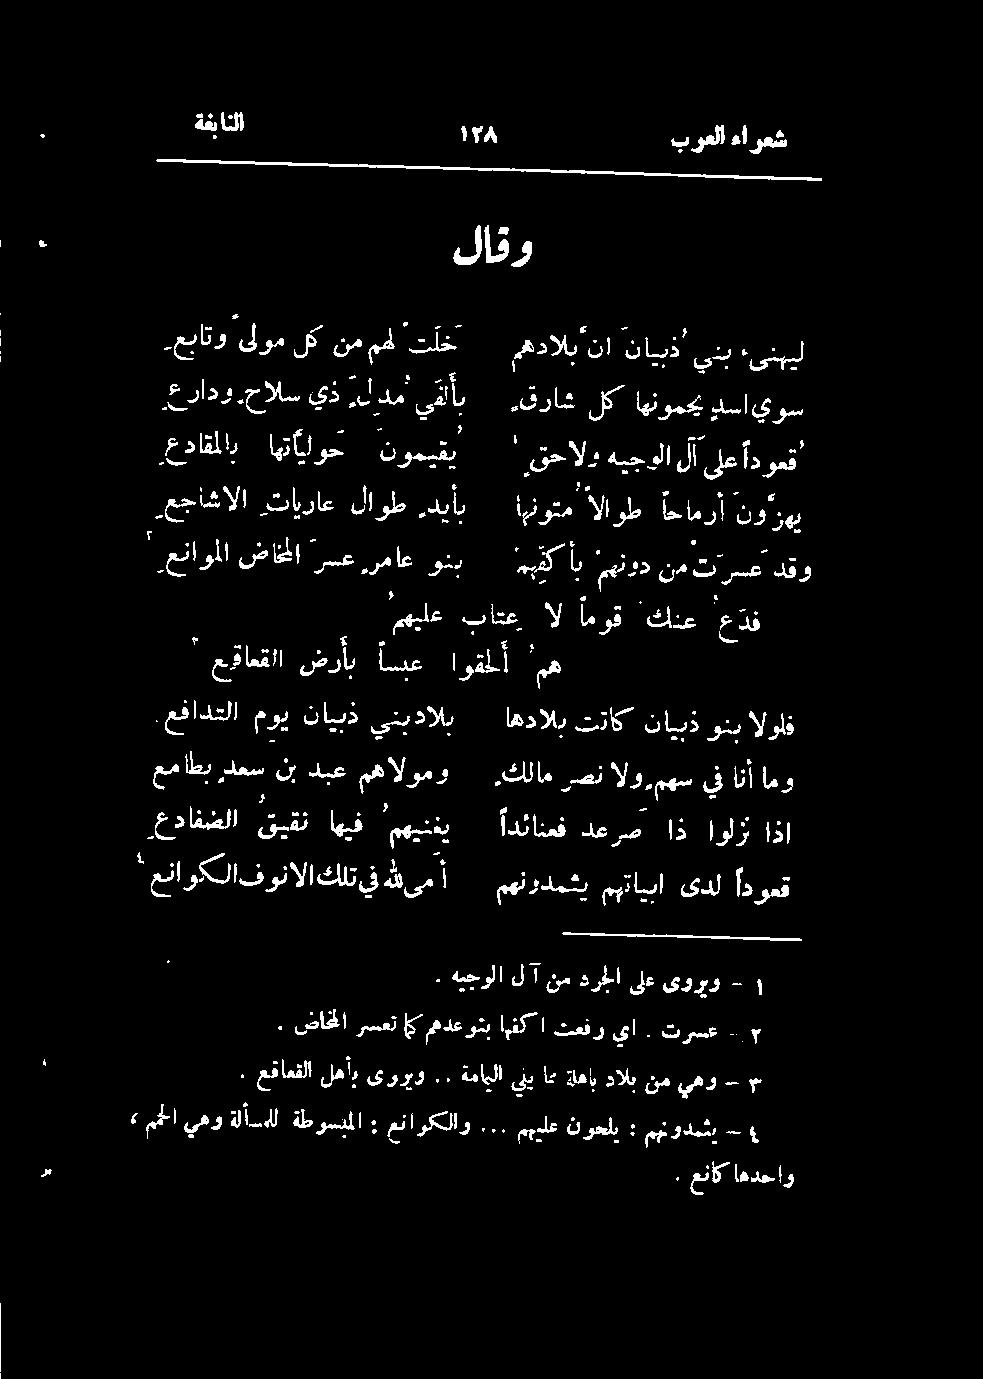 شعراء العرب ١٢٨ النابغة
وقال
ليهنىء بني ذُبيانَ انّ بلادهم خَلَتْ لهم من كل مولىً وتابعِ
سوى اسدٍ يحمونها كل شارقٍ بأَلفَي مُدلٍ ذي سلاحٍ ودارعِ
قُعوداً على آل الوجيه ولاحقٍ ١ يُقيمونَ حَولياتِها بالمقادعِ
يهزّونَ أرماحاً طوالاً مُتونها بأيدٍ طوالٍ عارياتِ الاشاجعِ
وقد عَسرَتْ من دونهمْ بأَكفِهمْ بنو عامرٍ عسرَ المخاض الموانعِ ٢
فدَع عنك قوماً لا عِتاب عليهمُ
همُ أَلحقوا عبساً بأَرض القعاقِع ٣
فلولا بنو ذبيان كانت بلادها بلاد بني ذبيان يوم التدافع.
وما أنا في سهمٍ ولا نصر مالكٍ ومولاهم عبد بن سعدٍ بطامع
اذا نزلوا ذا صَرعد فعتائداً يغنيهمُ فيها نقيقُ الضفادعِ
قعوداً لدى ابياتهم يثمدونهم أَمى الله في تلك الانوف الكوانع ٤
١ – ويروى على الجرد من آل الوجيه .
٢ – عسرت . اي رفعت اكفها بتوعدهم كما تعسر المخاض .
٣ – وهي من بلاد باهلة مما يلي اليمامة .. ويروى بأهل القعاقع .
٤ – يثمدونهم : يلحون عليهم ... والكوانع : المبسوطة للمسألة وهي الحمم ،
واحدها كانع .